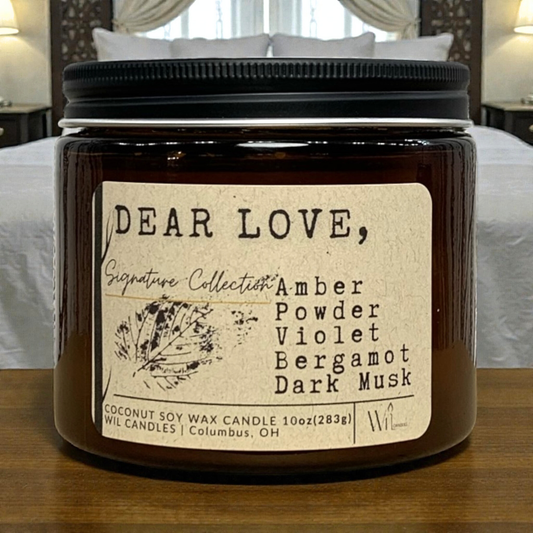 DEAR LOVE,
Signature Collection
Amber
Powder
Violet
Bergamot
Dark Musk
COCONUT SOY WAX CANDLE 10oz(283g)
WIL CANDLES | Columbus, OH
Wil